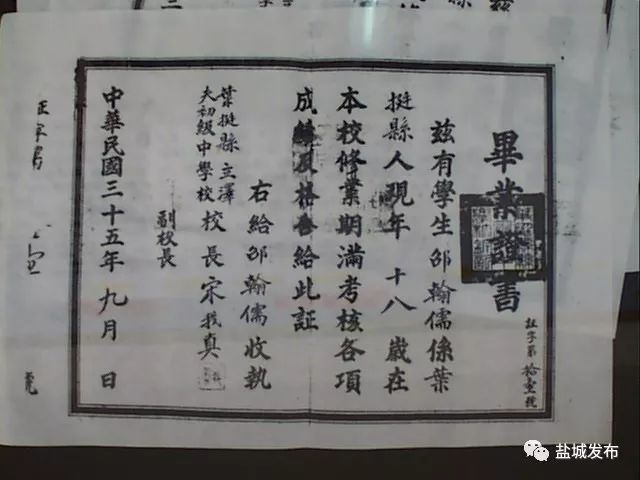 畢業證書
茲有學生邵翰儒係葉
挺縣人現年十八歲在
本校修業期滿考核各項
成績及格合給此証
右給邵翰儒收執
葉挺縣立澤
夫初級中學校校長宋我真
副校長
中華民國三十五年九月日
証字第拾壹號
盐城发布